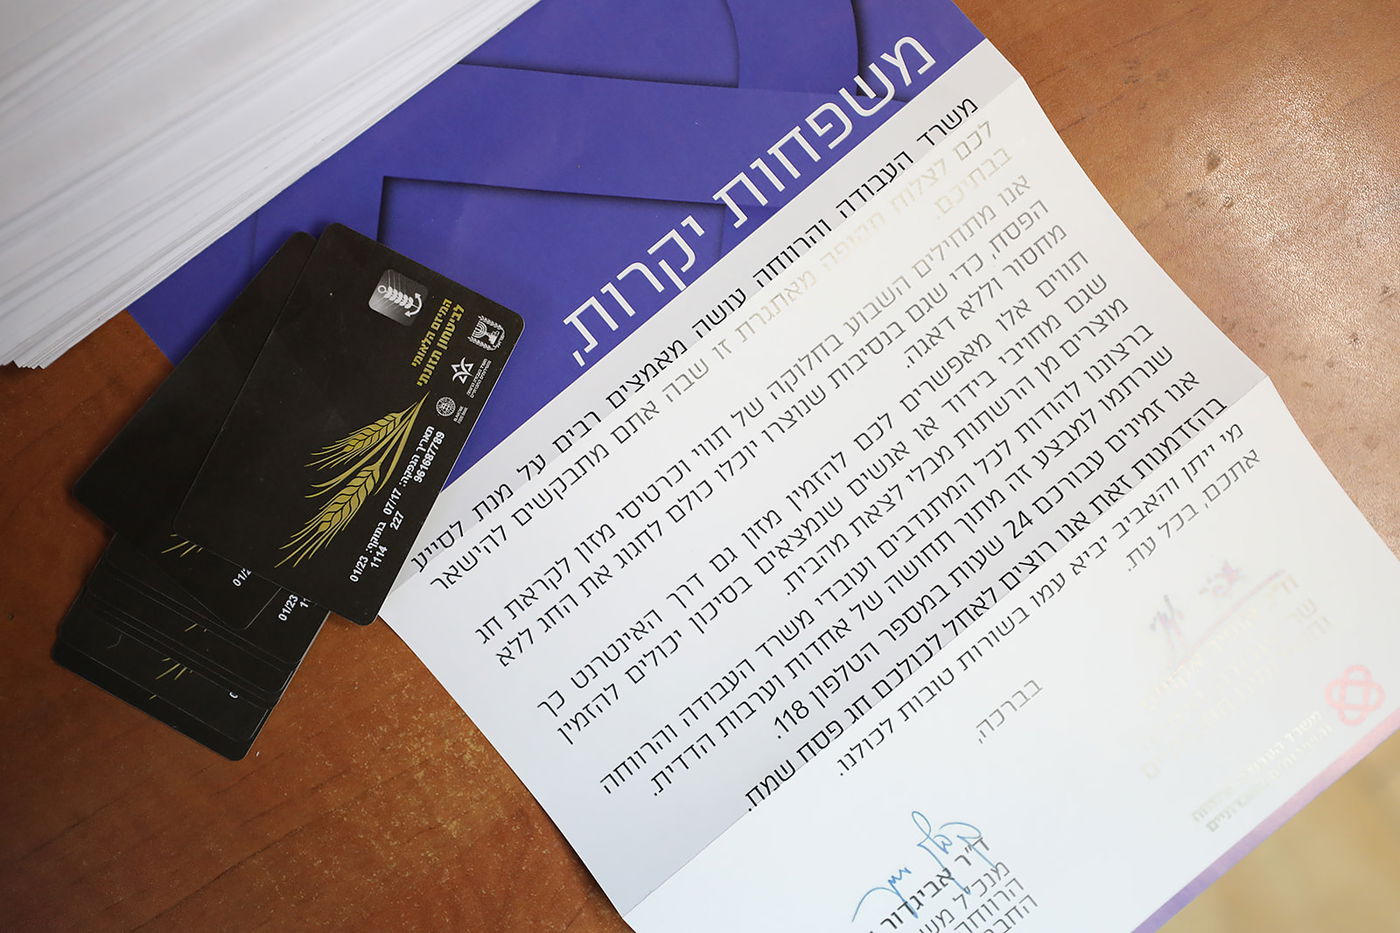 משפחות יקרות,
משרד העבודה והרווחה עושה מאמצים רבים על מנת לסייע
לכם לצלוח תקופה מאתגרת זו שבה אתם מתבקשים להישאר
בבתיכם.
אנו מתחילים השבוע בחלוקה של תווי וכרטיסי מזון לקראת חג
הפסח, כדי שגם בנסיבות שנוצרו יוכלו כולם לחגוג את החג ללא
מחסור וללא דאגה.
תווים אלו מאפשרים לכם להזמין מזון גם דרך האינטרנט כך
שגם מחויבי בידוד או אנשים שנמצאים בסיכון יכולים להזמין
מוצרים מן הרשתות מבלי לצאת מהבית.
ברצוננו להודות לכל המתנדבים ועובדי משרד העבודה והרווחה
שנרתמו למבצע זה מתוך תחושה של אחדות וערבות הדדית.
אנו זמינים עבורכם 24 שעות במספר הטלפון 118.
בהזדמנות זאת אנו רוצים לאחל לכולכם חג פסח שמח.
מי ייתן והאביב יביא עמו בשורות טובות לכולנו.
אתכם, בכל עת.
בברכה,
ד"ר אביגדור
מנכ"ל
הרווחה
המיזם הלאומי
לביטחון תזונתי
תאריך הנפקה: 07/17 בתוקף: 01/23
961687789 227 1114
01/2
01/23